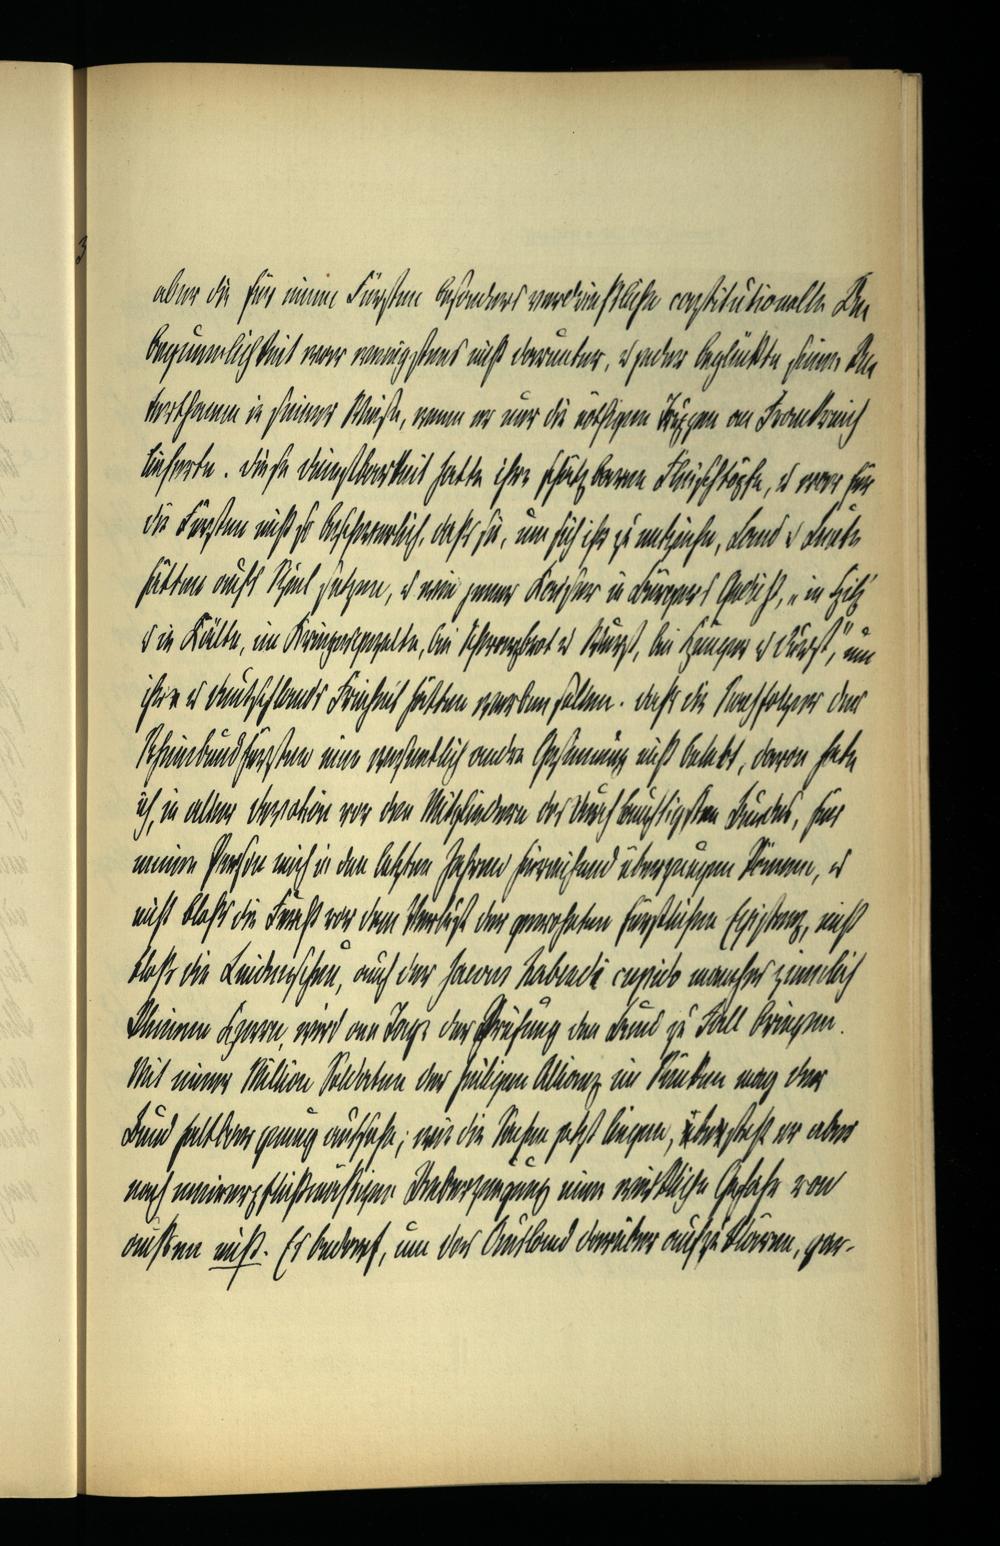 aber die für einen Fürsten besonders verdrießliche constitutionelle Un
bequemlichkeit war wenigstens nicht darunter, u jeder beglückte seine Un
terthanen in seiner Weise, wenn er nur die nöthigen Truppen an Frankreich
lieferte. Diese Dienstbarkeit hatte ihre schätzbaren Fleischtöpfe, u war für
die Fürsten nicht so beschwerlich, daß sie, um sich ihr zu entziehn, Land u Leute
hätten aufs Spiel setzen, u wie jener Kaiser in Bürgers Gedicht, „in Hitz'
u in Kälte, im Kriegesgezelte, bei Schwarzbrot u Wurst, bei Hunger u Durst", um
ihre u Deutschlands Freiheit hätten werben sollen. Daß die Nachfolger der
Rheinbundfürsten eine wesentlich andre Gesinnung nicht belebt, davon habe
ich, in aller devotion vor den Mitgliedern des durchlauchtigsten Bundes, für
meine Person mich in den letzten Jahren hinreichend überzeugen können, u
nicht bloß die Furcht vor dem Verlust der gewohnten fürstlichen Existenz, nicht
bloß die Leidenschen, auch der habendi cupido mancher ziemlich
kleinen Herrn, wird am Tage der Prüfung den Bund zu Fall bringen.
Mit einer Million Soldaten der heiligen Allianz im Rücken mag der
Bund haltbar genug aussehn; wie die Sachen jetzt liegen, übersteht er aber
nach meiner pflichtmäßigen Ueberzeugung eine wirkliche Gefahr von
außen nicht. Es bedarf, um das Ausland darüber aufzuklären, gar-